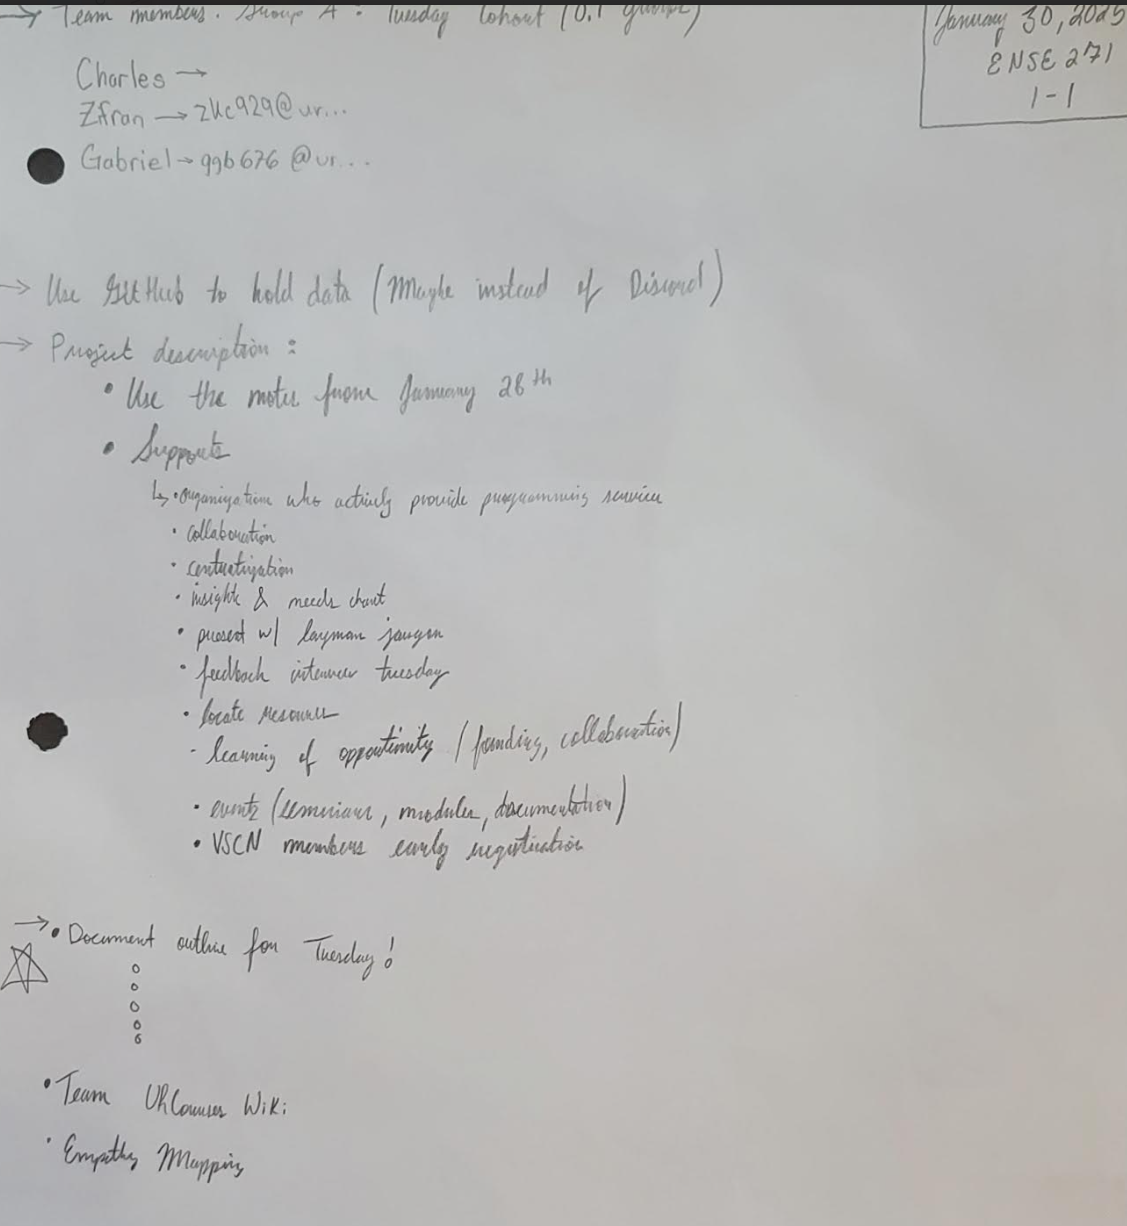 → Team members. Group A: Tuesday Cohort (0.1
January 30, 2025
ENSE 271
1-1
Charles →
Zifran → zkc929@ur...
Gabriel → ggb676@ur...
→ Use GitHub to hold data (Maybe instead of Discord)
→ Project description:
• Use the notes from January 28th
• Supports
↳ • organizations who actively provide programming service
• collaboration
• centralization
• insights & needs chart
• present w/ layman jargon
• feedback interview tuesday
• locate resources
- learning of opportunity (funding, collaboration)
• events (seminars, modules, documentation)
• VSCN members early registration
→ • Document outline for Tuesday!
• Team URCourses Wiki
• Empathy Mapping